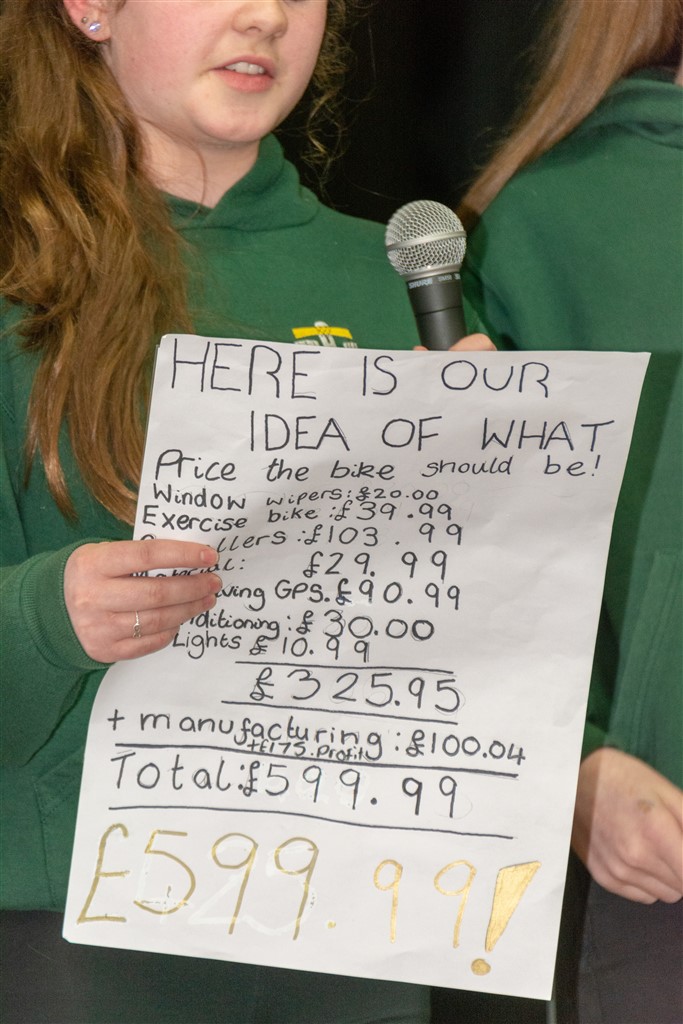 SHURE
HERE IS OUR
IDEA OF WHAT
Price the bike should be!
Window wipers: £20.00
Exercise bike: £39.99
llers: £103.99
£29.99
GPS. £90.99
ditioning: £30.00
Lights £10.99
£325.95
+ manufacturing: £100.04
+£175. Profit
Total: £599.99
£599.99!